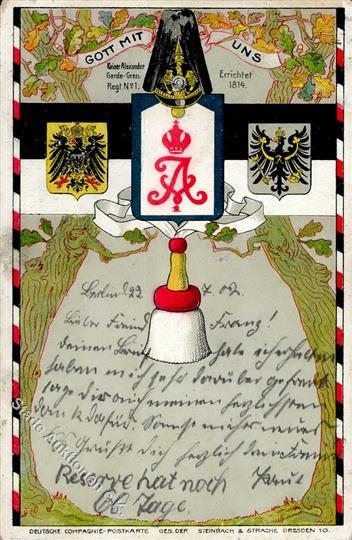 GOTT MIT UNS
Kaiser Alexander
Garde-Gren:
Regt. No 1.
Errichtet
1814.
A
1
Berlin 22 7. 02.
Lieber Freund Franz!
deinen habe ich erhalten
haben mich sehr darüber gefreut
sage dir meinen herzlichsten
dank dafür. Sonst nichts neues
Grüßt dich herzlich dein Freund
Reserve hat noch Paul
66 Tage.
DEUTSCHE COMPAGNIE-POSTKARTE GES. DER STEINBACH & STRACHE DRESDEN 10.